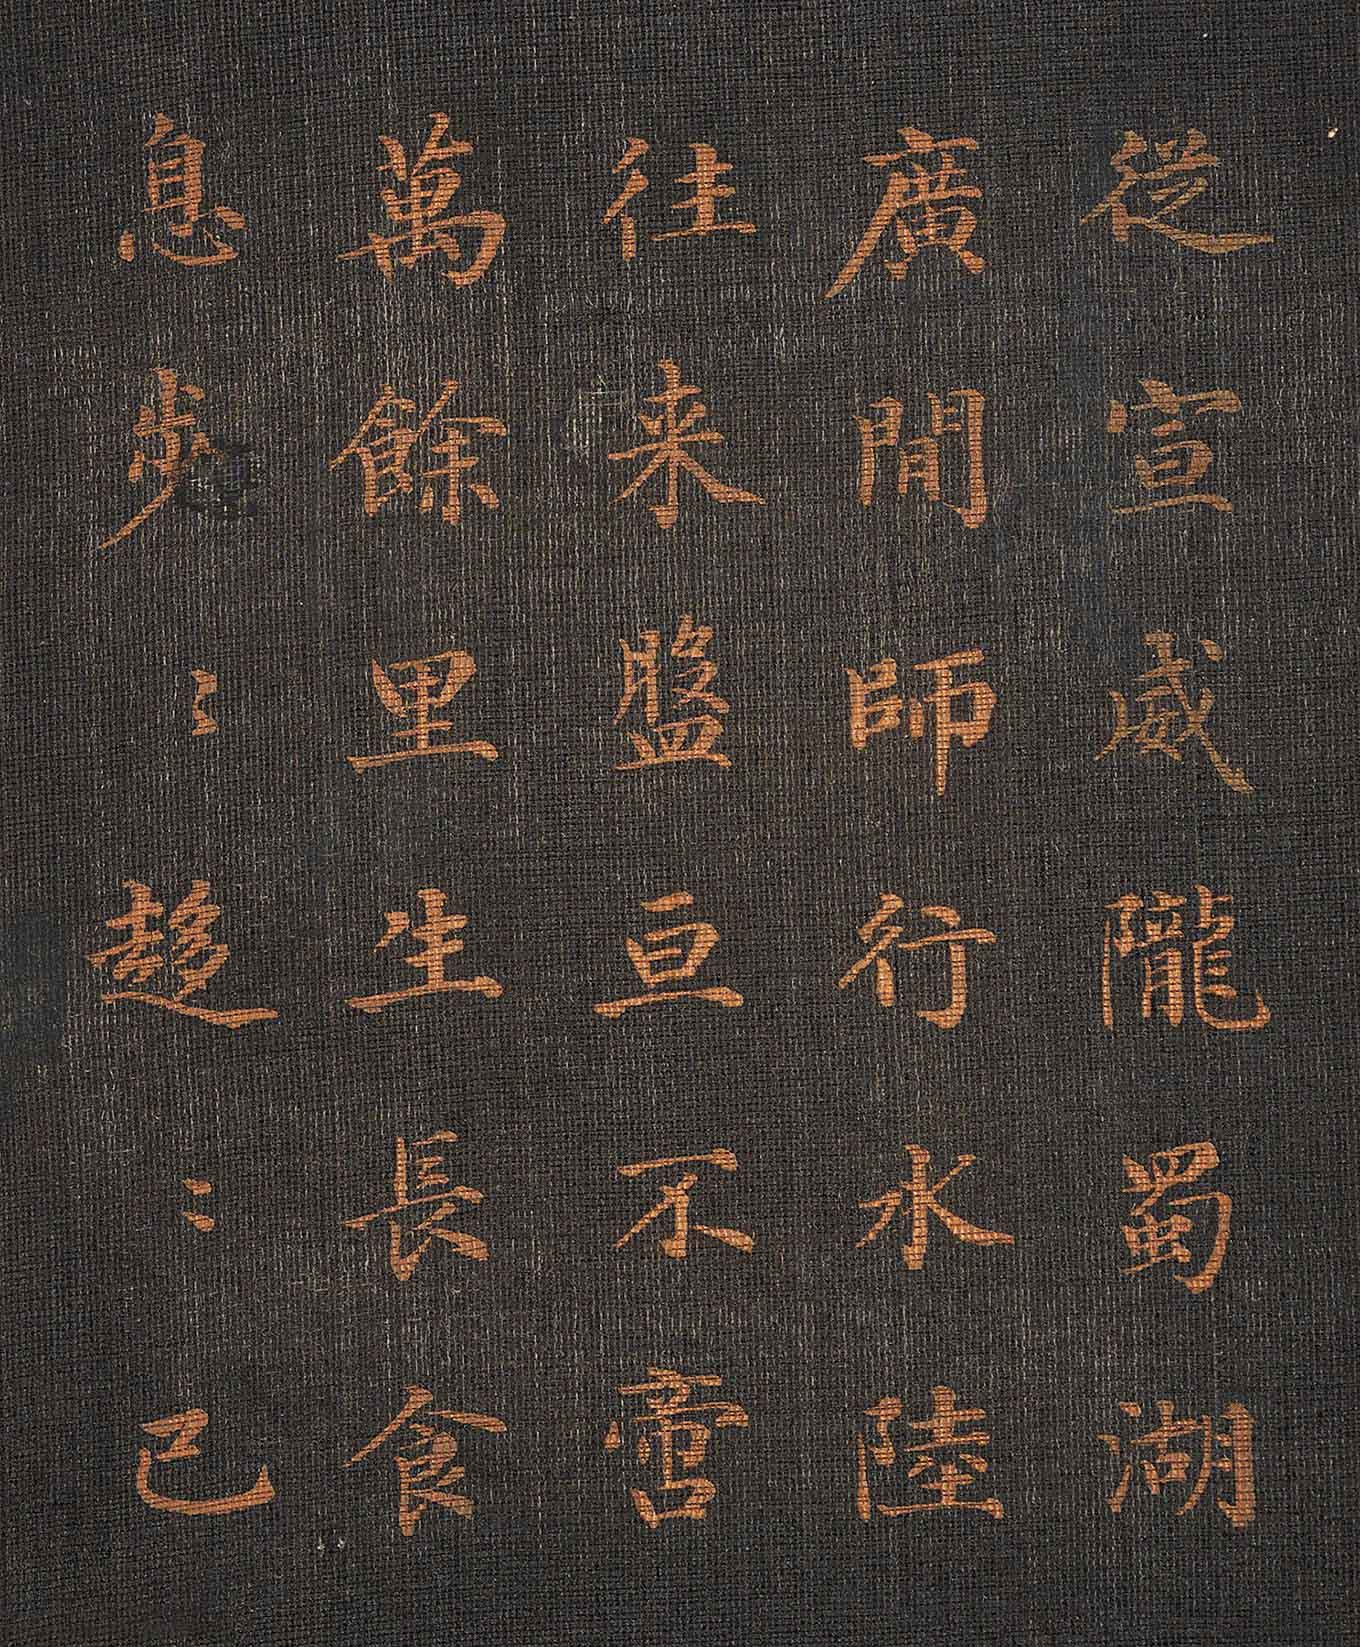 從宣威隴蜀湖
廣閒師行水陸
往来盤亘不啻
萬餘里生長食
息步〻趍〻已